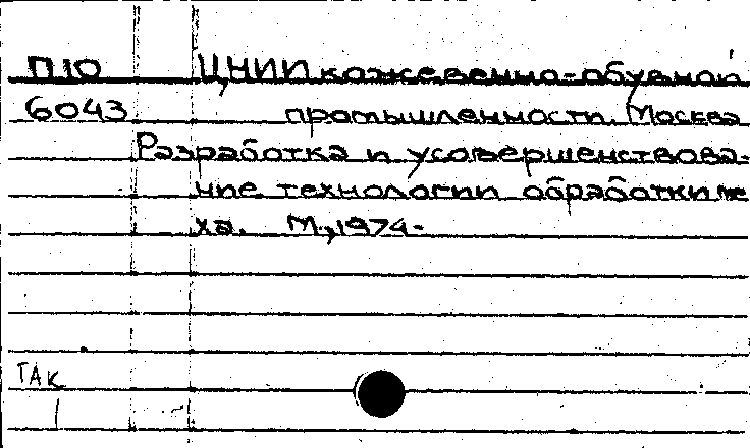 П10 ЦНИИ кожевенно-обувной
6043 промышленности. Москва
Разработка и усовершенствова-
ние технологии обработки ме
ха. М., 1974-
ТАК